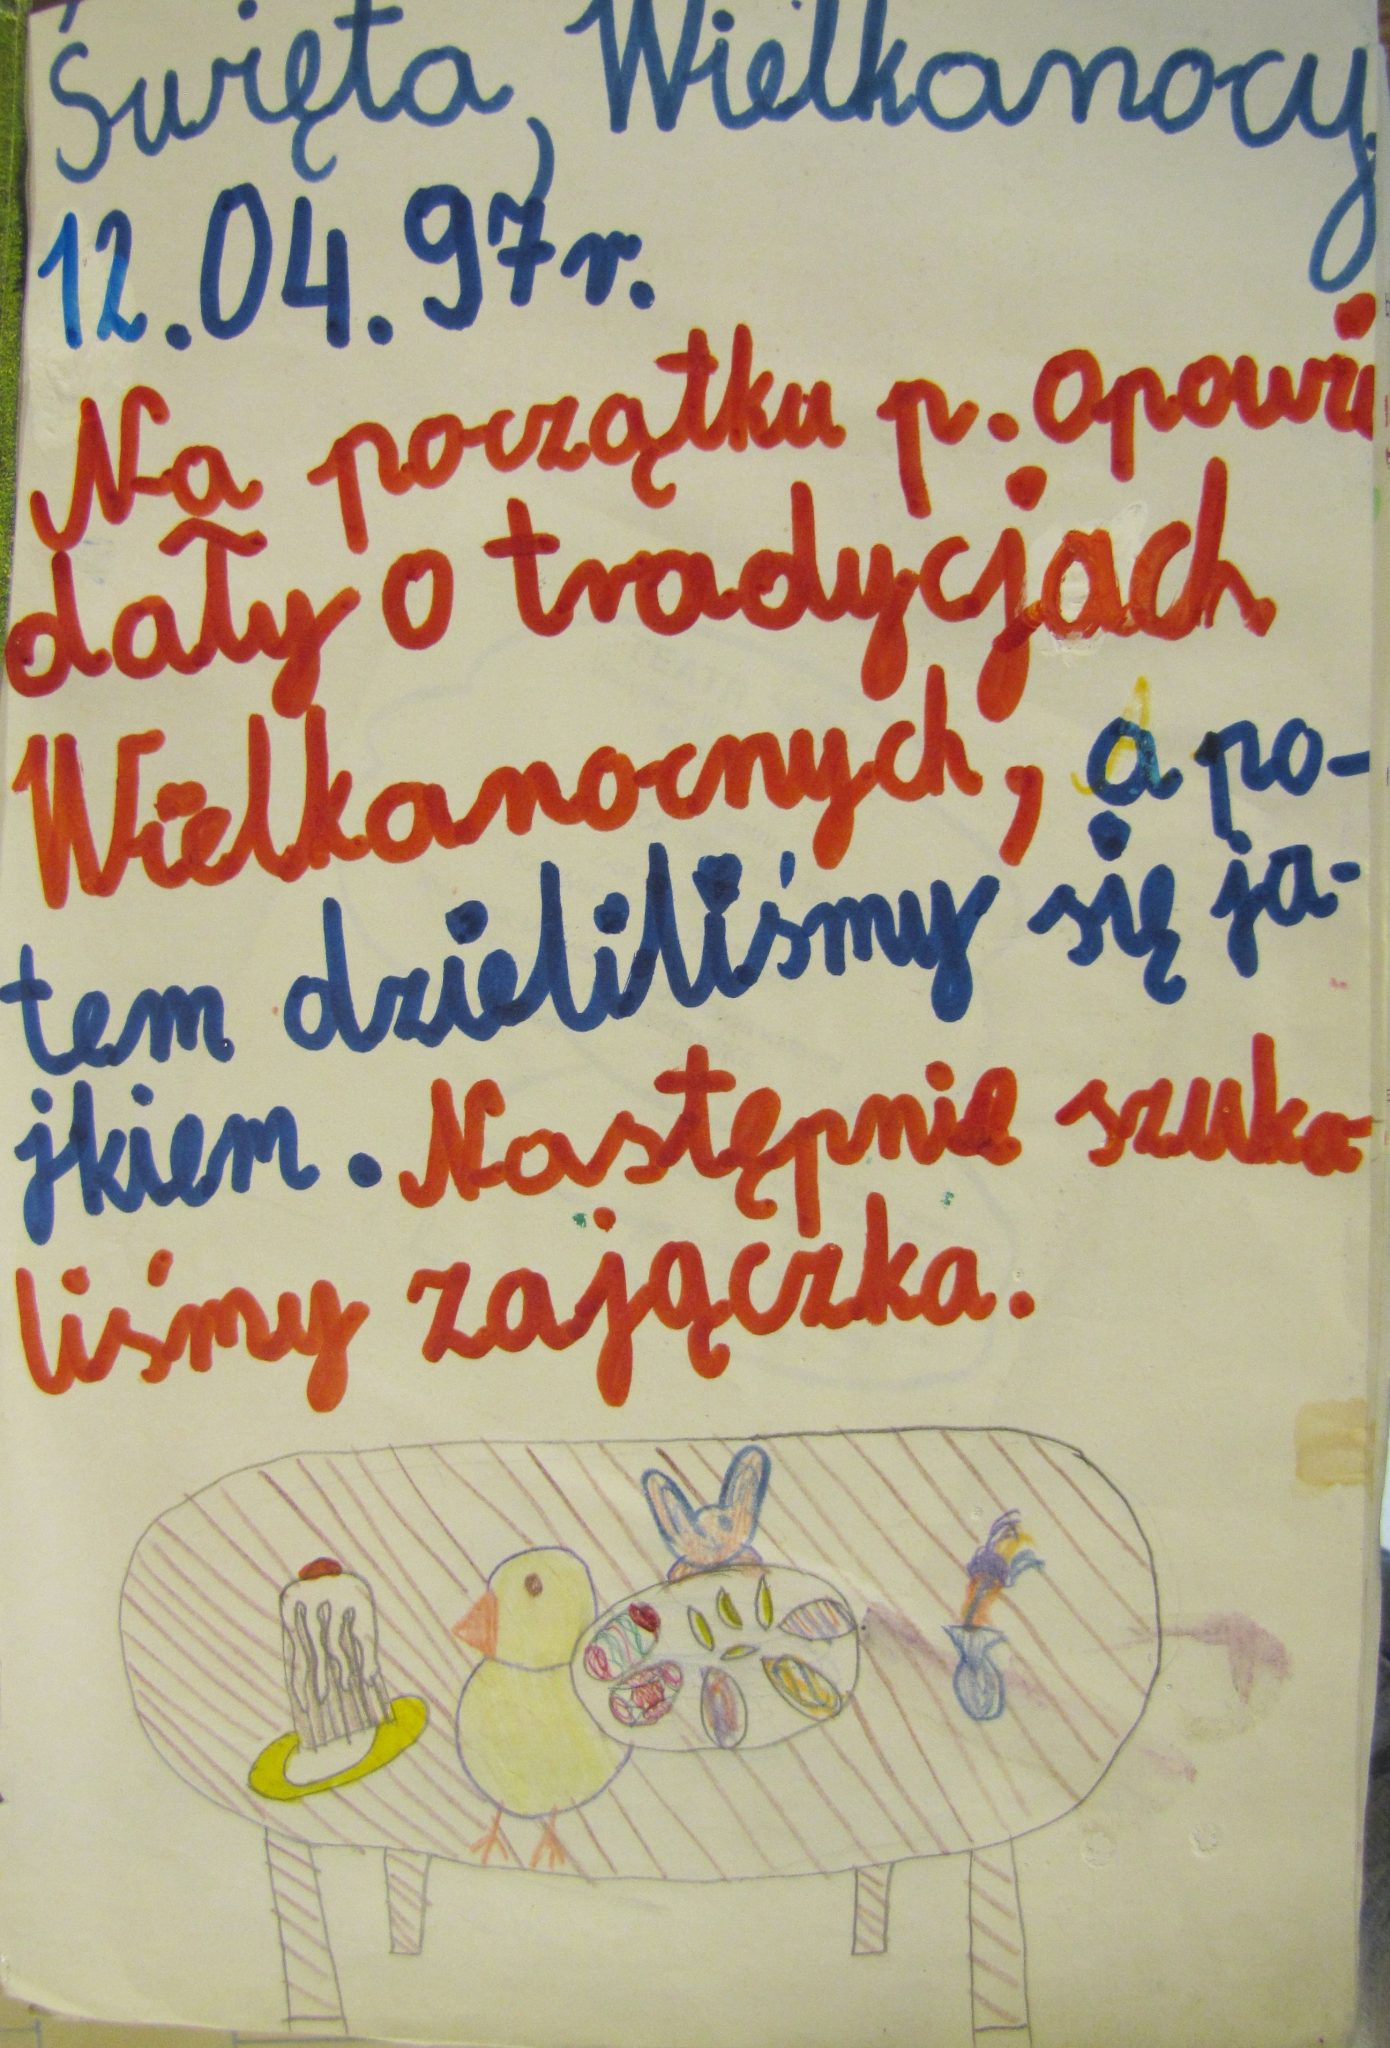 Święta Wielkanocy
12.04.97r.
Na początku p. opowie
dały o tradycjach
Wielkanocnych, a po-
tem dzieliliśmy się ja-
jkiem. Następnie szuka
liśmy zajączka.